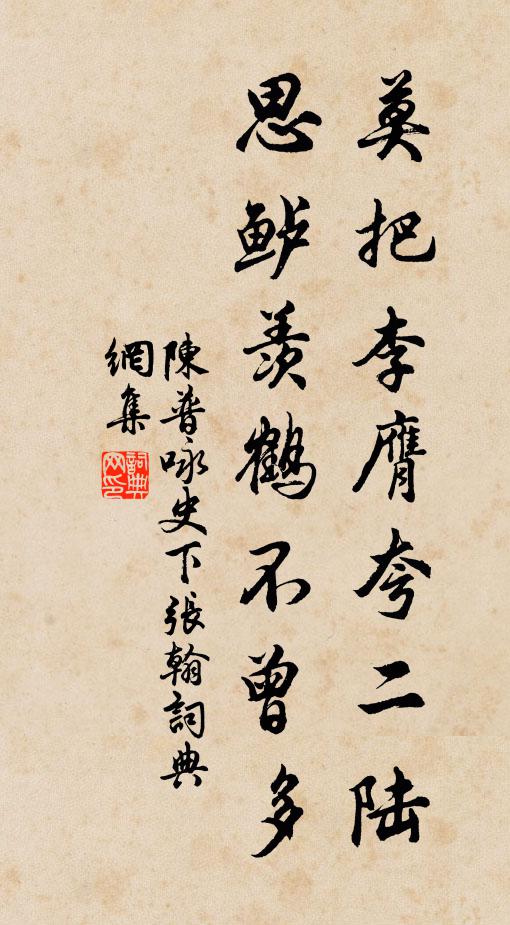 莫把李膺夸二陆
思鲈羡鹤不曾多
陳普咏史下張翰詞典
網集
詞典网印